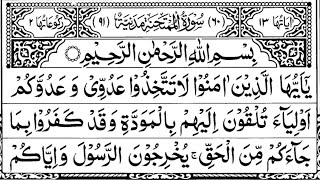 اٰيَاتُهَا ١٣ (٦٠) سُوْرَةُ الْمُمْتَحِنَةِ مَدَنِيَّةٌ (٩١) رُكُوْعَاتُهَا ٢
بِسْمِ اللّٰهِ الرَّحْمٰنِ الرَّحِيْمِ
يٰۤاَيُّهَا الَّذِيْنَ اٰمَنُوْا لَا تَتَّخِذُوْا عَدُوِّىْ وَ عَدُوَّكُمْ
اَوْلِيَآءَ تُلْقُوْنَ اِلَيْهِمْ بِالْمَوَدَّةِ وَ قَدْ كَفَرُوْا بِمَا
جَآءَكُمْ مِّنَ الْحَقِّ ۚ يُخْرِجُوْنَ الرَّسُوْلَ وَ اِيَّاكُمْ